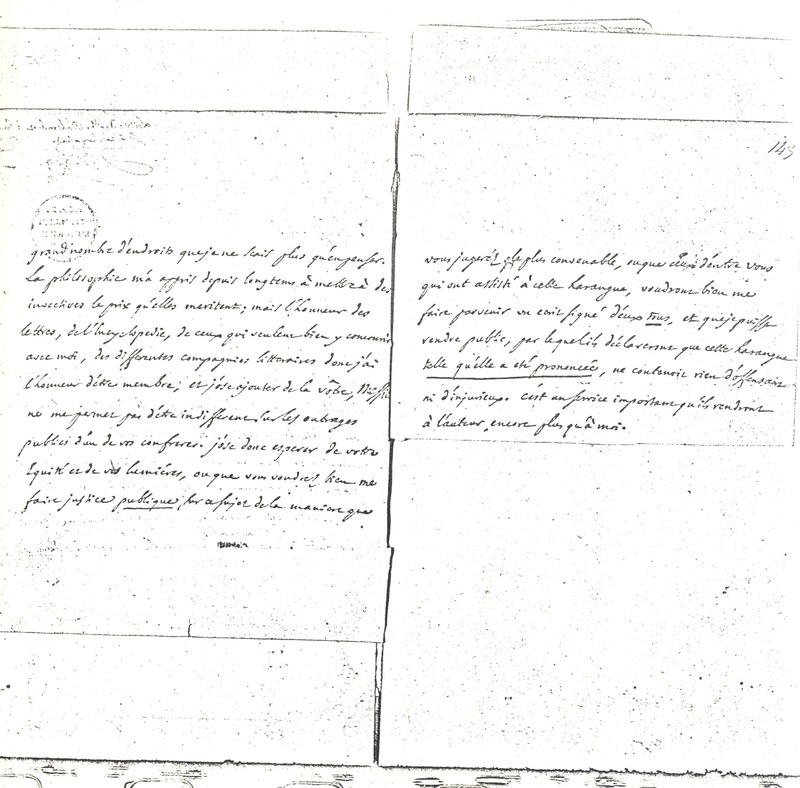 grand nombre d'endroits que je ne scais plus qu'en penser.
La philosophie m'a appris depuis longtems à mettre à des
invectives le prix qu'elles meritent; mais l'honneur des
lettres, de l'Encyclopedie, de ceux qui veulent bien y concourir
avec moi, des differentes compagnies litteraires dont j'ai
l'honneur d'être membre; et j'ose ajouter de la vôtre, Messie
ne me permet pas d'être indifferent sur les outrages
publics d'un de vos confreres. j'ose donc esperer de votre
Equité et de vos lumiéres, ou que vous voudrez bien me
faire justice publique sur ce sujet de la maniere que
143
vous jugeréz le plus convenable, ou que ceux d'entre vous
qui ont assisté à cette harangue, voudront bien me
faire parvenir un ecrit signé d'eux tous, et que je puisse
rendre public, par lequel ils déclareront que cette harangue
telle qu'elle a eté prononcée, ne contenoit rien d'offensant
ni d'injurieux. c'est un service important qu'ils rendront
à l'auteur, encore plus qu'à moi.